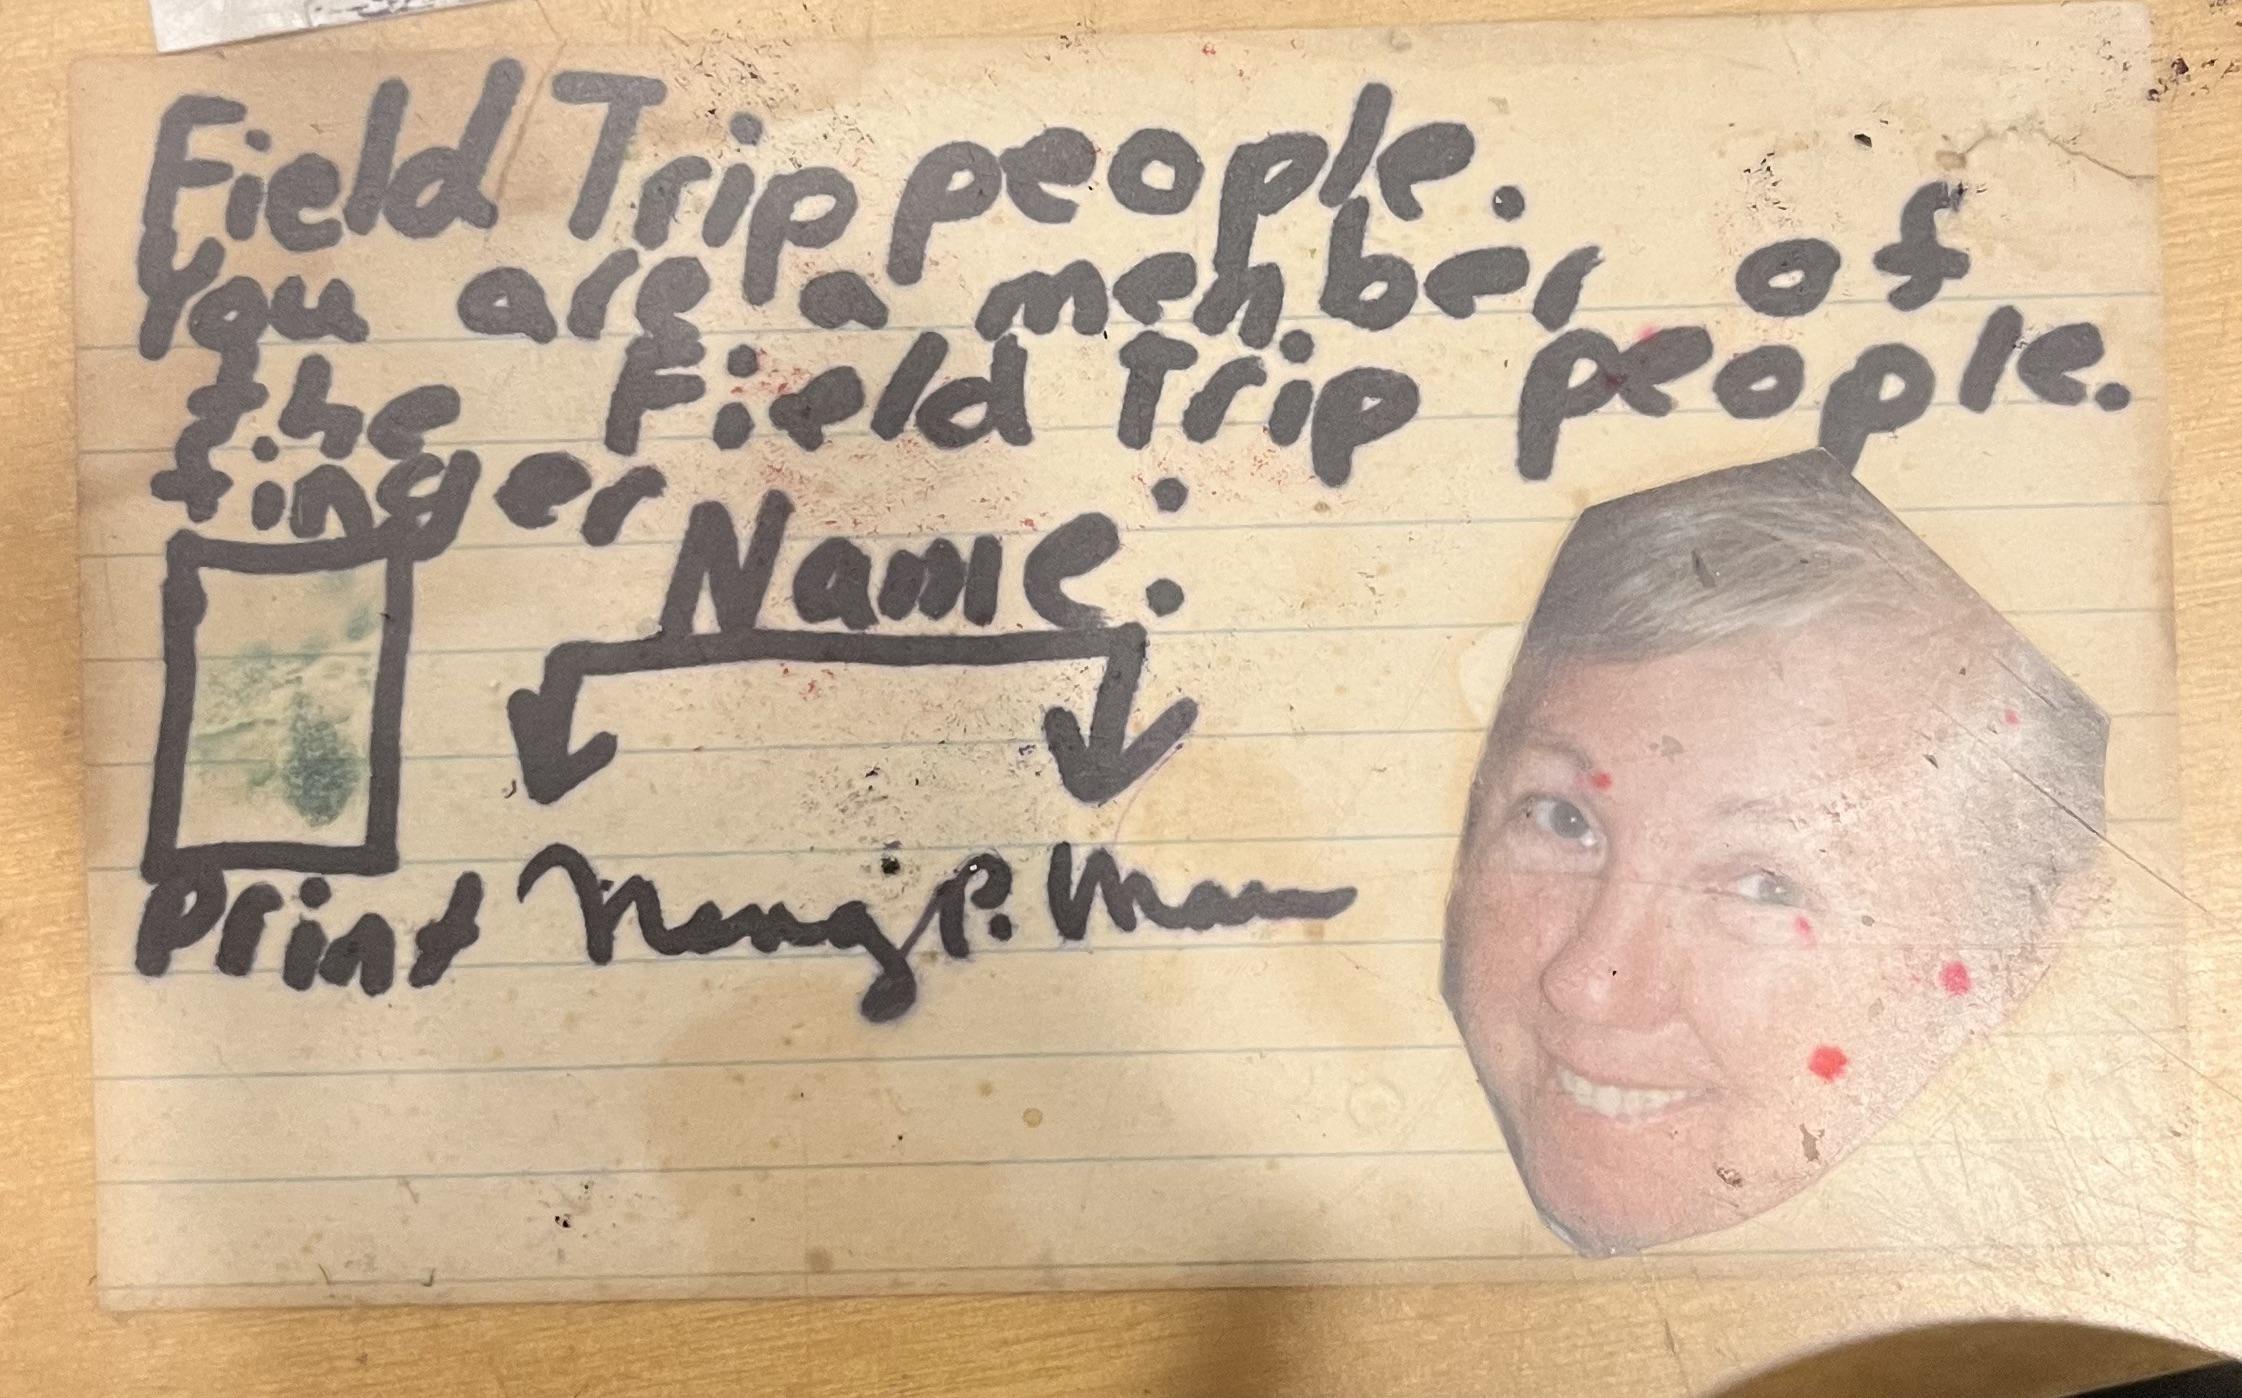 Field Trip people.
You are a member of
the Field Trip people.
finger
Name:
Print
P.